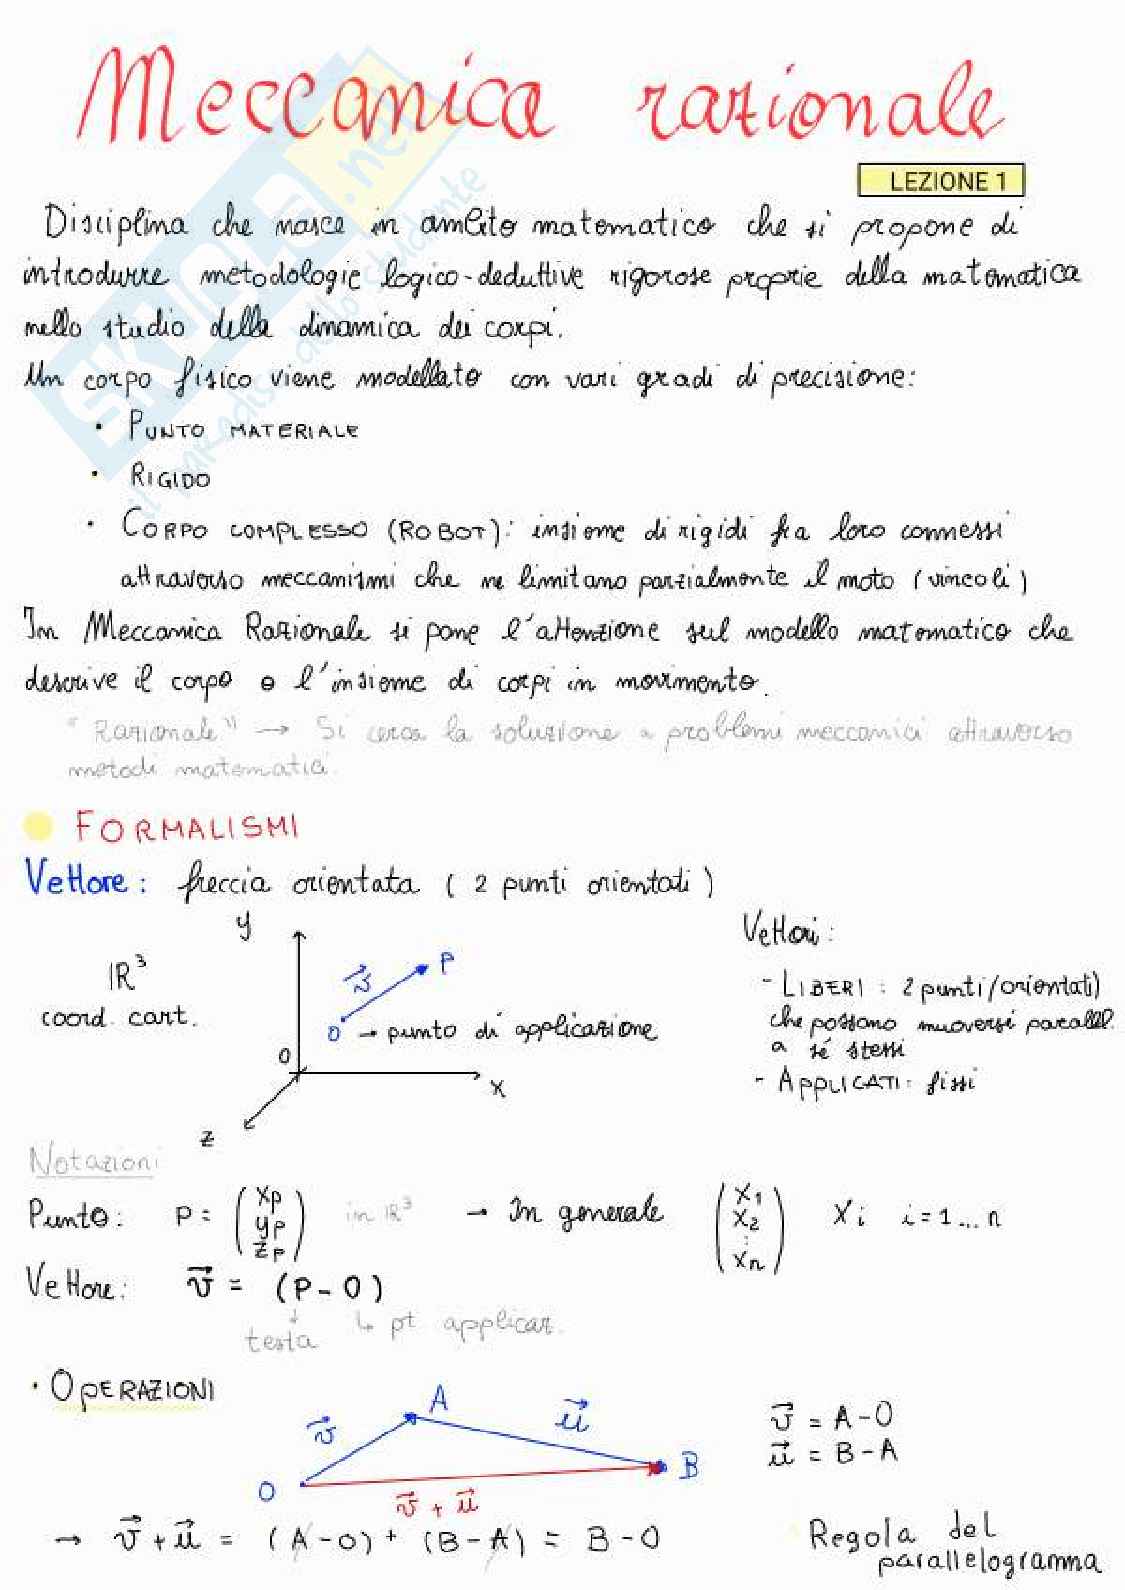 Meccanica razionale
LEZIONE 1
Disciplina che nasce in ambito matematico che si propone di
introdurre metodologie logico-deduttive rigorose proprie della matematica
nello studio della dinamica dei corpi.
Un corpo fisico viene modellato con vari gradi di precisione:
• PUNTO MATERIALE
• RIGIDO
• CORPO COMPLESSO (ROBOT): insieme di rigidi fra loro connessi
attraverso meccanismi che ne limitano parzialmente il moto (vincoli)
In Meccanica Razionale si pone l'attenzione sul modello matematico che
descrive il corpo o l'insieme di corpi in movimento.
"Razionale" → Si cerca la soluzione a problemi meccanici attraverso
metodi matematici.
FORMALISMI
Vettore: freccia orientata (2 punti orientati)
y
Vettori:
ℝ³
coord. cart.
v⃗
P
O → punto di applicazione
- LIBERI: 2 punti/orientati)
che possono muoversi parallel.
a sé stessi
- APPLICATI: fissi
O
x
z
Notazioni
Punto: P = (xp yp zp) in ℝ³ → In generale (x1 x2 ⋮ xn) Xi i=1...n
Vettore: v⃗ = (P-O)
↓ testa ↳ pt applicaz.
• OPERAZIONI
A
v⃗
u⃗
B
O
v⃗ + u⃗
v⃗ = A-O
u⃗ = B-A
→ v⃗ + u⃗ = (A-O) + (B-A) = B-O
Regola del
parallelogramma
SKUOLA.net
il paradiso dello studente